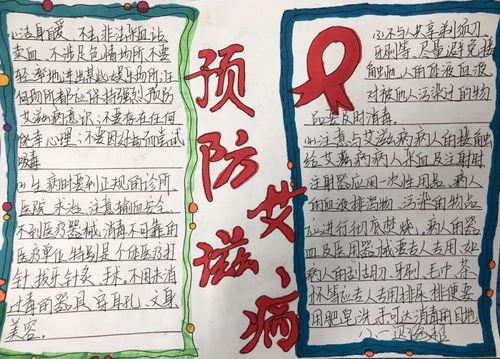 (1)洁身自爱、不去非法采血站
卖血,不涉足色情场所不要
轻率地进出某些娱乐场所;任
何场所都应保持强烈预防
艾滋病意识;不要存在任何
侥幸心理;不要因好奇而尝试
吸毒
(2)生病时要到正规的诊所、
医院求治,注意输血安全,
不到医疗器械消毒不可靠的
医疗单位特别是个体医疗打
针、拔牙、针灸、手术。不用未消
过毒的器具穿耳孔、文身
美容。
预防艾滋病
(3)不与人共享剃须刀、
牙刷等、尽量避免接
触他人的体液血液
对被他人污染过的物
品要及时消毒。
(4)注意与艾滋病病人的接触:
给艾滋病病人采血及注射时
注射器应用一次性用品,病人
的血液排泄物、污染的物品
应进行彻底焚烧。病人的器
皿及医用器械要专人专用,如
病人的刮胡刀、牙刷、毛巾、茶
杯等应专人专用排尿、排便要
用肥皂洗手可达消毒的目地